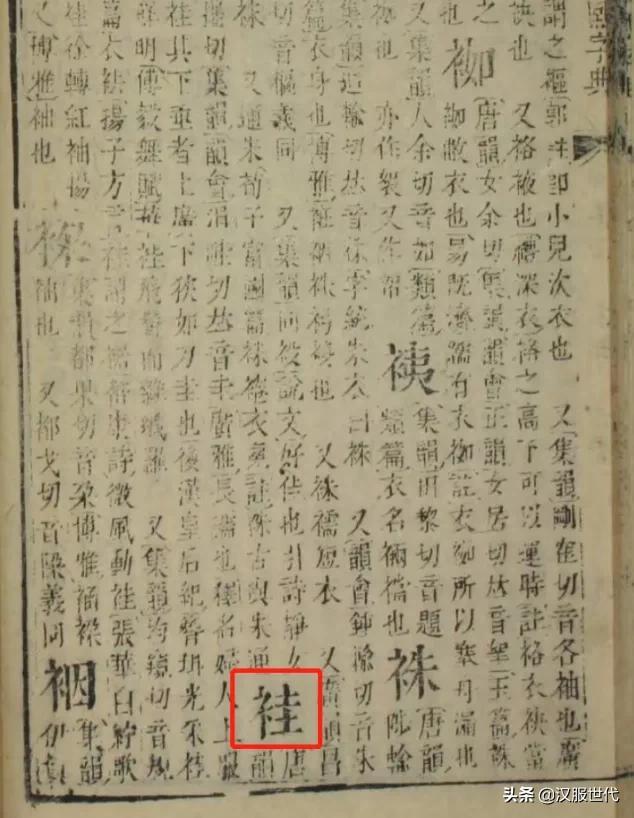 熙字典
謂之 郭註卽小兒次衣也 又集韻剛雀切音各袖也廣
袂也 又袼袚也禮深衣袼之高下可以運肘註袼衣袂當
之 袽 唐韻女余切集韻韻會正韻女居切𠀤音 玉篇袾
也 袽敝衣也易旣濟繻有衣袽註衣袽所以塞舟漏也
又集韻人余切音如類篇 集韻田黎切音題 袾 唐韻
亦作袈又作帤 類篇衣名裲襠也 陟輸
集韻追輸切𠀤音株字統朱衣曰袾 又韻會鍾輸切音朱
篇衣身也博雅 袾 也 又袾襦短衣 又廣韻昌
切音樞義同 又集韻同 說文好佳也引詩靜女 袿 唐
袾 又通朱荀子富國篇袾裷衣冕註袾古與朱通 韻
攜切集韻韻會涓畦切𠀤音圭廣雅長襦也釋名婦人上服
袿其下垂者上廣下狹如刀圭也後漢皇后紀簪珥光采袿
鮮明傅毅舞賦華袿飛髾而雜纖羅 又集韻均窺切音規
篇衣袂揚子方言袿謂之裾 詩微風動袿張華白紵歌
袿徐轉紅袖揚 集韻都果切音朶博雅
又博雅袖也 袖也 又都戈切音 義同 裀 集韻伊眞
头条 @汉服世代